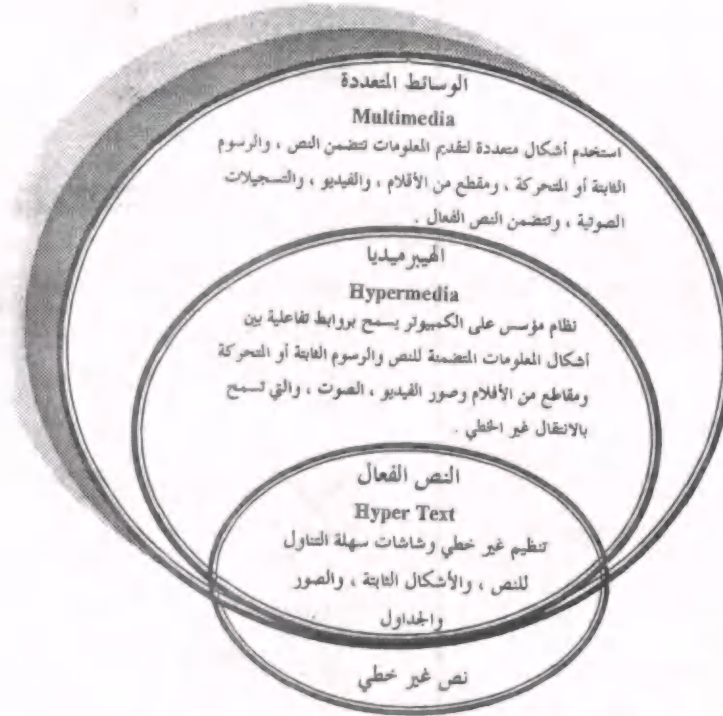 الوسائط المتعددة
Multimedia
استخدم أشكال متعددة لتقديم المعلومات تتضمن النص ، والرسوم
الثابتة أو المتحركة ، ومقطع من الأفلام ، والفيديو ، والتسجيلات
الصوتية ، وتتضمن النص الفعال .
الهيبرميديا
Hypermedia
نظام مؤسس على الكمبيوتر يسمح بروابط تفاعلية بين
أشكال المعلومات المتضمنة للنص والرسوم الثابتة أو المتحركة
ومقاطع من الأفلام وصور الفيديو ، الصوت ، والتي تسمح
بالانتقال غير الخطي .
النص الفعال
Hyper Text
تنظيم غير خطي وشاشات سهلة التناول
للنص ، والأشكال الثابتة ، والصور
والجداول
نص غير خطي